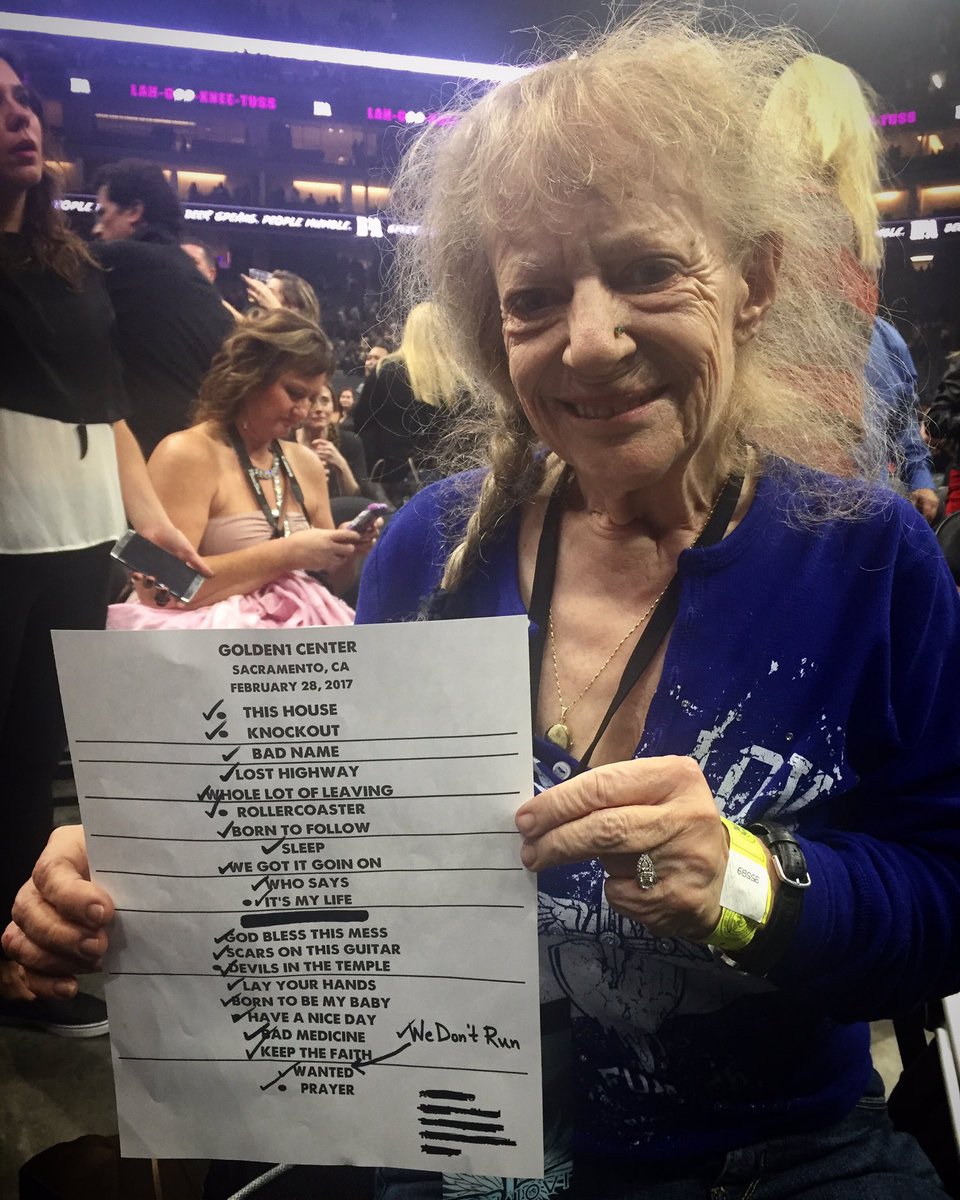 LAH-GOO-KNEE-TUSS
IPA
LAH-G
-KNEE-TUSS
BEER SPEAKS. PEOPLE MUMBLE. IPA
GOLDEN1 CENTER
SACRAMENTO, CA
FEBRUARY 28, 2017
THIS HOUSE
KNOCKOUT
BAD NAME
LOST HIGHWAY
WHOLE LOT OF LEAVING
ROLLERCOASTER
BORN TO FOLLOW
SLEEP
WE GOT IT GOIN ON
WHO SAYS
IT'S MY LIFE
GOD BLESS THIS MESS
SCARS ON THIS GUITAR
DEVILS IN THE TEMPLE
LAY YOUR HANDS
BORN TO BE MY BABY
HAVE A NICE DAY
BAD MEDICINE
KEEP THE FAITH
We Don't Run
WANTED
PRAYER
95599